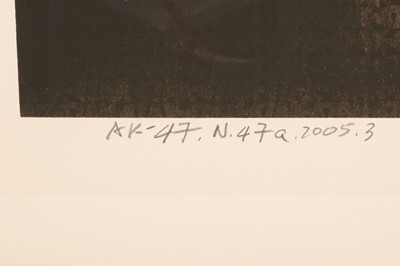 AK-47. N.47a.2005.3